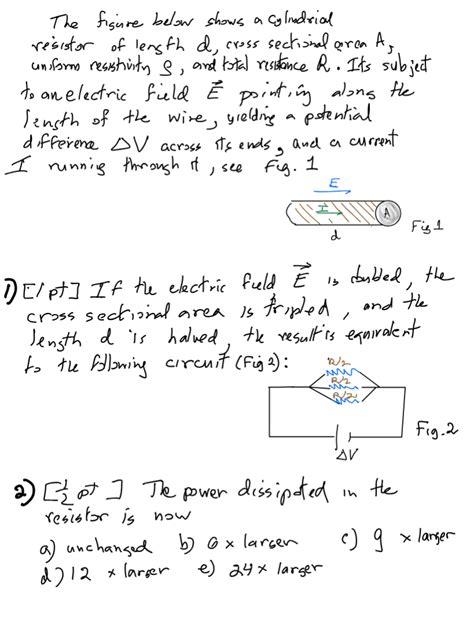 The figure below shows a cylindrical
resistor of length d, cross sectional area A,
uniform resistivity ρ, and total resistance R. Its subject
to an electric field E⃗ pointing along the
length of the wire, yielding a potential
difference ΔV across its ends, and a current
I running through it, see Fig. 1
E
I
A
d
Fig 1
1) [1 pt] If the electric field E⃗ is doubled, the
cross sectional area is tripled, and the
length d is halved, the result is equivalent
to the following circuit (Fig 2):
R/2
R/2
R/2
ΔV
Fig. 2
2) [1/2 pt] The power dissipated in the
resistor is now
a) unchanged b) 6 x larger c) 9 x larger
d) 12 x larger e) 24 x larger